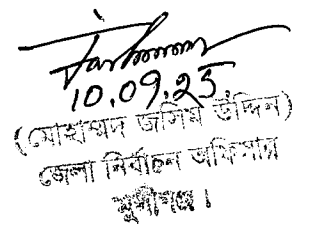 10.09.25.
(মোহাম্মদ জসিম উদ্দিন)
জেলা নির্বাচন অফিসার
মুন্সীগঞ্জ।